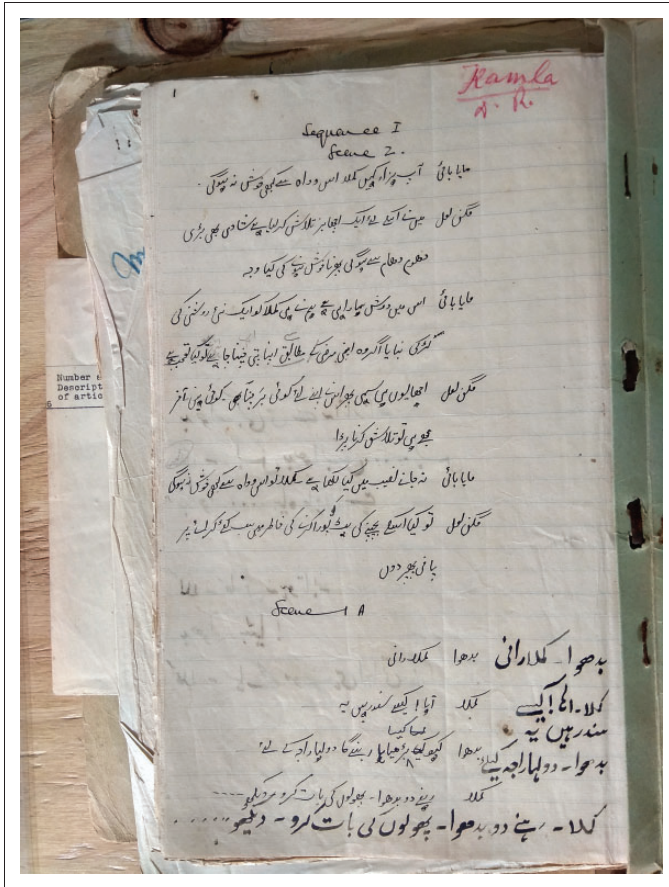 Kamla
D. R.
1
Sequence I
Scene 2.
مایا بائی آپ ہزار کہیں کملا اس وواہ سے کبھی خوش نہ ہوگی۔
مگن لعل میں نے اسکے لئے ایک اچھا بر تلاش کر لیا ہے شادی بھی بڑی
دھوم دھام سے ہوگی پھر ناخوش ہونے کی کیا وجہ
مایا بائی اس میں دوش ہمارا ہی ہے ہم نے ہی کملا کو ایک نئی روشنی کی
لڑکی بنایا اگر وہ اپنی مرضی کے مطابق اپنا پتی چننا چاہے تو کیا تعجب ہے
مگن لعل اچھا یوں ہی سہی پھر اس نے اپنے لئے کوئی بر چنا بھی۔ کوئی نہیں آخر
مجھے ہی تو تلاش کرنا پڑا
مایا بائی نہ جانے نصیب میں کیا لکھا ہے کملا تو اس وواہ سے کبھی خوش نہ ہوگی
مگن لعل تو کیا اسکے بچپنے کی ہٹ کو پورا کرنے کی خاطر میں سب کئے کرائے پر
پانی پھیر دوں
Scene 1 A
بدھوا کملا رانی
بدھوا - کملا رانی
کملا آہا! کیسے سندر ہیں یہ
کملا - آہا! کیسے
سندر ہیں یہ
بدھوا دولہا راجہ کے لئے
بدھوا - دولہا راجہ کیلئے
کملا رہنے دو بدھوا - پھولوں کی بات کرو دیکھو -----
کملا - رہنے دو بدھوا - پھولوں کی بات کرو - دیکھو ......
Number &
Descript
of artic